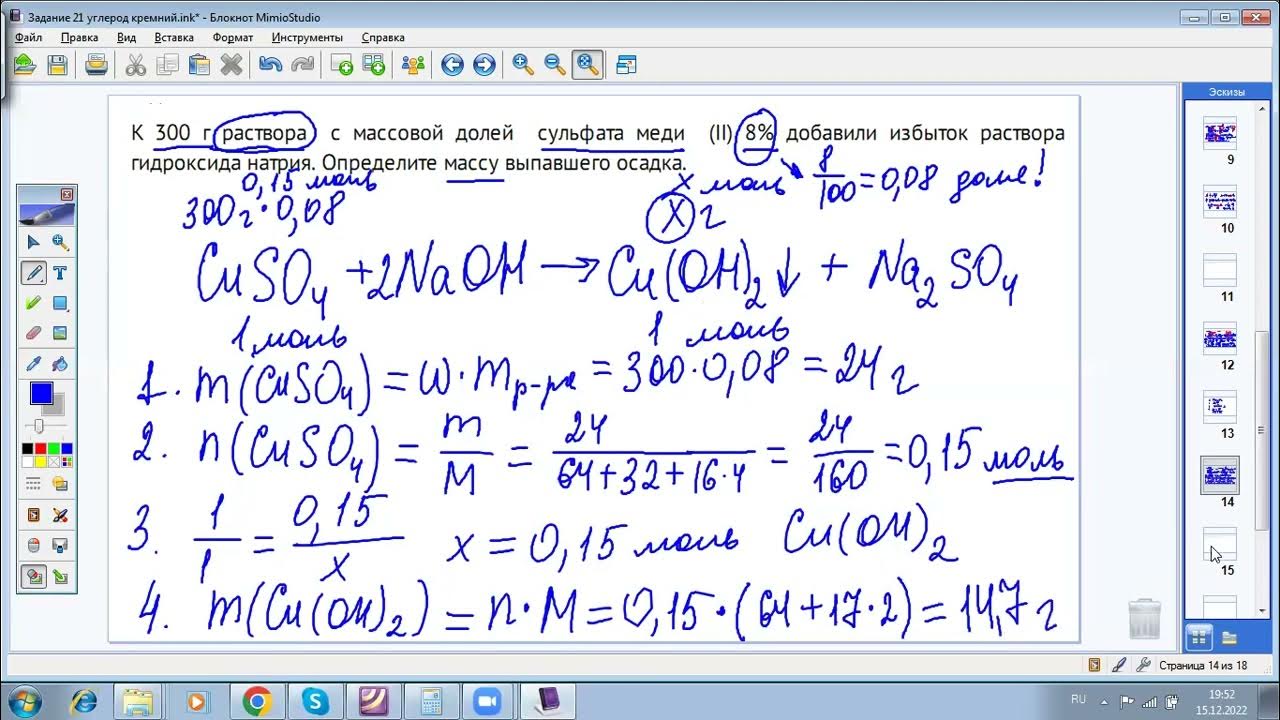 Задание 21 углерод кремний.ink* - Блокнот MimioStudio
Файл Правка Вид Вставка Формат Инструменты Справка
К 300 г раствора с массовой долей сульфата меди (II) 8% добавили избыток раствора
гидроксида натрия. Определите массу выпавшего осадка.
0,15 моль
x моль
8/100 = 0,08 доля!
300 г · 0,08
X г
CuSO4 + 2NaOH → Cu(OH)2↓ + Na2SO4
1 моль
1 моль
1. m(CuSO4) = ω · m р-ра = 300 · 0,08 = 24 г
2. n(CuSO4) = m/M = 24/(64+32+16·4) = 24/160 = 0,15 моль
3. 1/1 = 0,15/x x = 0,15 моль Cu(OH)2
4. m(Cu(OH)2) = n · M = 0,15 · (64+17·2) = 14,7 г
Эскизы
9
10
11
12
13
14
15
Страница 14 из 18
RU
19:52
15.12.2022